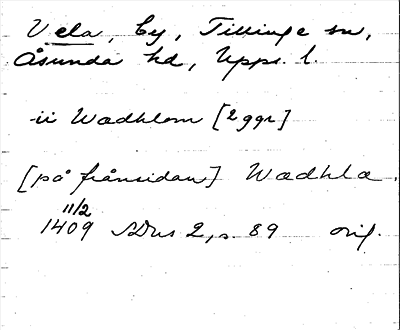 Vela, by, Tillinge sn,
Åsunda hd, Upps. l.
ii Wædhlom [2 ggr]
[på frånsidan] Wædhla.
11/2
1409 SDns 2, s. 89 orig.